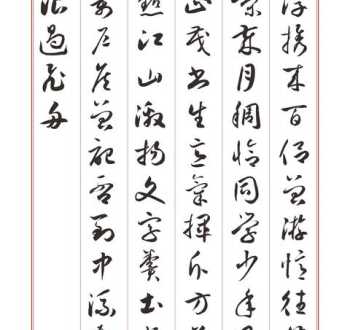 浮携来百侣曾游忆往
嵘岁月稠恰同学少年
正茂书生意气挥斥方
点江山激扬文字粪土
万户侯曾记否到中流
浪遏飞舟